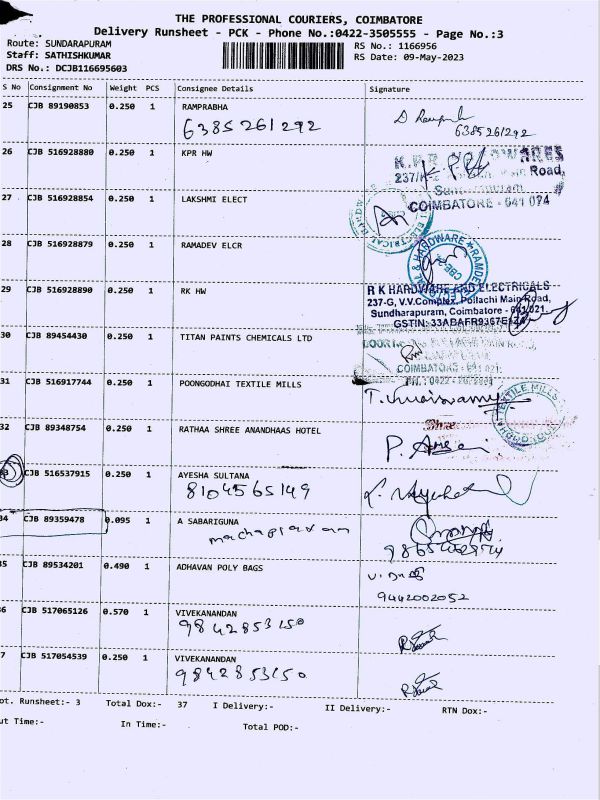 THE PROFESSIONAL COURIERS, COIMBATORE
Delivery Runsheet - PCK - Phone No.:0422-3505555 - Page No.:3
Route: SUNDARAPURAM
RS No.: 1166956
Staff: SATHISHKUMAR
RS Date: 09-May-2023
DRS No.: DCJB116695603
S No Consignment No Weight PCS Consignee Details Signature
25 CJB 89190853 0.250 1 RAMPRABHA
6385261292
6385261292
26 CJB 516928880 0.250 1 KPR HW
Road,
COIMBATORE - 641 024
27 CJB 516928854 0.250 1 LAKSHMI ELECT
28 CJB 516928879 0.250 1 RAMADEV ELCR
& HARDWARE
29 CJB 516928890 0.250 1 RK HW
R K HARDWARE AND ELECTRICALS
237-G, V.V.Complex, Pollachi Main Road,
Sundharapuram, Coimbatore - 641 021.
GSTIN: 33ABAFR9367E1ZA
30 CJB 89454430 0.250 1 TITAN PAINTS CHEMICALS LTD
31 CJB 516917744 0.250 1 POONGODHAI TEXTILE MILLS
TEXTILE MILLS
32 CJB 89348754 0.250 1 RATHAA SHREE ANANDHAAS HOTEL
33 CJB 516537915 0.250 1 AYESHA SULTANA
8104565149
34 CJB 89359478 0.095 1 A SABARIGUNA
35 CJB 89534201 0.490 1 ADHAVAN POLY BAGS
9442002052
6 CJB 517065126 0.570 1 VIVEKANANDAN
9842853150
7 CJB 517054539 0.250 1 VIVEKANANDAN
9842853150
ot. Runsheet:- 3 Total Dox:- 37 I Delivery:- II Delivery:- RTN Dox:-
ut Time:- In Time:- Total POD:-